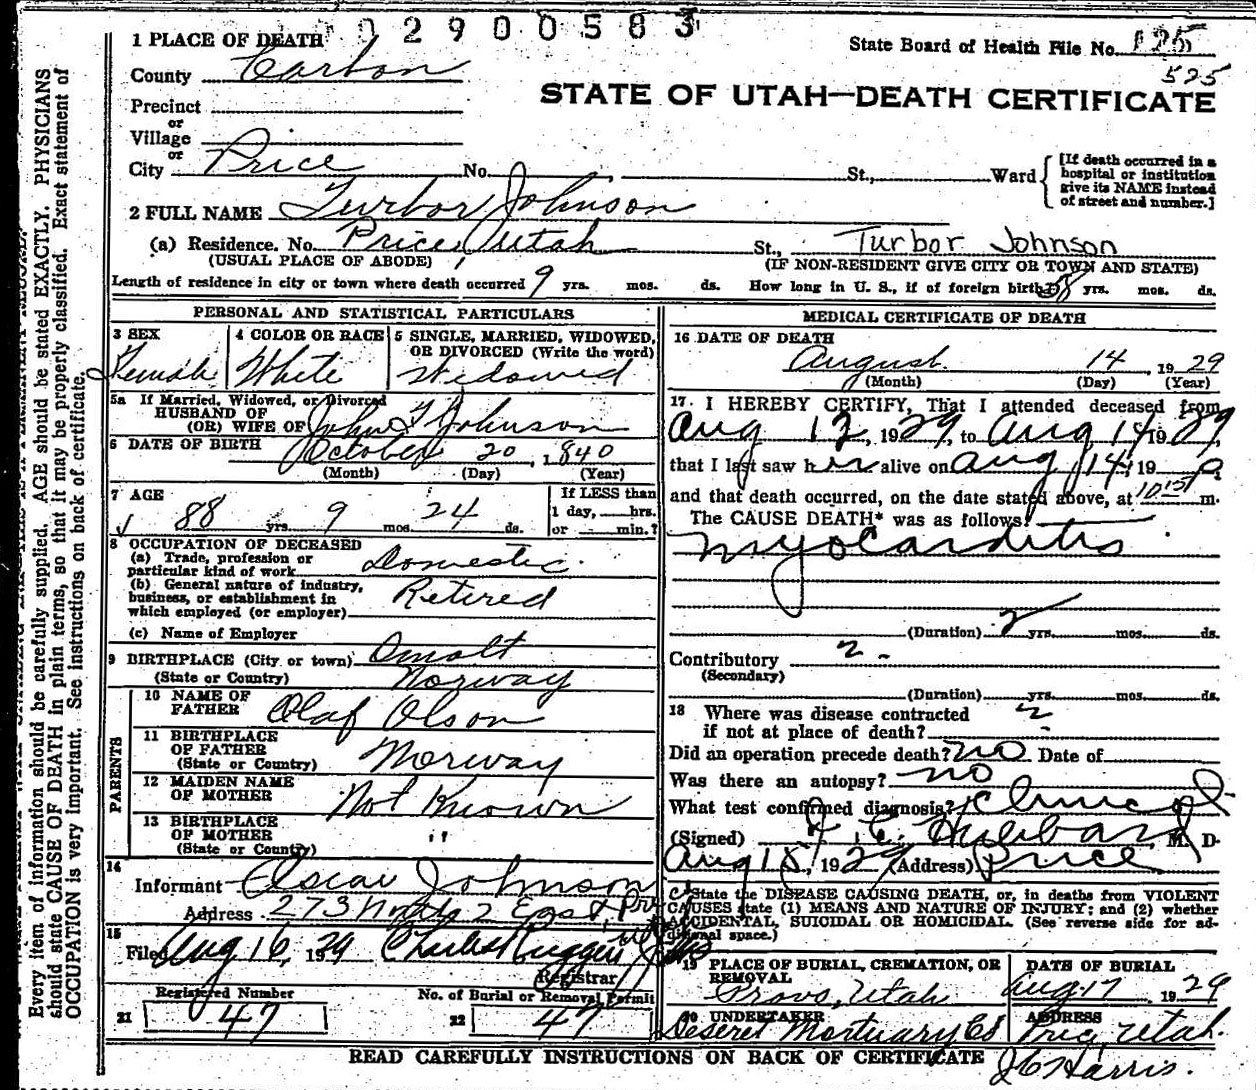 02900583
1 PLACE OF DEATH
State Board of Health File No. 125
525
County Carbon
STATE OF UTAH—DEATH CERTIFICATE
Precinct
or
Village
or
City Price No. St., Ward
[If death occurred in a hospital or institution give its NAME instead of street and number.]
2 FULL NAME Turbor Johnson
(a) Residence. No. Price, Utah St., Turbor Johnson
(USUAL PLACE OF ABODE) (IF NON-RESIDENT GIVE CITY OR TOWN AND STATE)
Length of residence in city or town where death occurred 9 yrs. mos. ds. How long in U. S., if of foreign birth? 58 yrs. mos. ds.
PERSONAL AND STATISTICAL PARTICULARS
3 SEX Female
4 COLOR OR RACE White
5 SINGLE, MARRIED, WIDOWED, OR DIVORCED (Write the word) Widowed
5a If Married, Widowed, or Divorced
HUSBAND OF
(OR) WIFE OF John F Johnson
6 DATE OF BIRTH October 20, 1840
(Month) (Day) (Year)
7 AGE 88 yrs. 9 mos. 24 ds.
If LESS than 1 day, hrs. or min.?
8 OCCUPATION OF DECEASED
(a) Trade, profession or particular kind of work Domestic
(b) General nature of industry, business, or establishment in which employed (or employer) Retired
(c) Name of Employer
9 BIRTHPLACE (City or town)
(State or Country) Norway
PARENTS
10 NAME OF FATHER Olaf Olson
11 BIRTHPLACE OF FATHER (State or Country) Norway
12 MAIDEN NAME OF MOTHER Not Known
13 BIRTHPLACE OF MOTHER (State or Country) "
14
Informant Oscar Johnson
Address 273 North 2 East, Price
15
Filed Aug 16, 1929
Registrar
Registered Number
21 47
No. of Burial or Removal Permit
22 47
MEDICAL CERTIFICATE OF DEATH
16 DATE OF DEATH
August 14, 1929
(Month) (Day) (Year)
17. I HEREBY CERTIFY, That I attended deceased from
Aug 12, 1929, to Aug 14 1929,
that I last saw her alive on Aug 14, 19 9
and that death occurred, on the date stated above, at 10 15 P m.
The CAUSE DEATH* was as follows:
Myocarditis
(Duration) 2 yrs. mos. ds.
Contributory ? -
(Secondary)
(Duration) yrs. mos. ds.
18 Where was disease contracted
if not at place of death? ?
Did an operation precede death? no Date of
Was there an autopsy? no
What test confirmed diagnosis? Clinical
(Signed) J. C. Hubbard, M. D.
Aug 15, 1929 (Address) Price
State the DISEASE CAUSING DEATH, or, in deaths from VIOLENT
CAUSES state (1) MEANS AND NATURE OF INJURY; and (2) whether
ACCIDENTAL, SUICIDAL OR HOMICIDAL. (See reverse side for additional space.)
19 PLACE OF BURIAL, CREMATION, OR REMOVAL
Provo, Utah
DATE OF BURIAL
Aug 17 1929
20 UNDERTAKER
Deseret Mortuary Co
ADDRESS
Price, Utah.
READ CAREFULLY INSTRUCTIONS ON BACK OF CERTIFICATE
J C Harris.
Every item of information should be carefully supplied. AGE should be stated EXACTLY. PHYSICIANS
should state CAUSE OF DEATH in plain terms, so that it may be properly classified. Exact statement of
OCCUPATION is very important. See instructions on back of certificate.